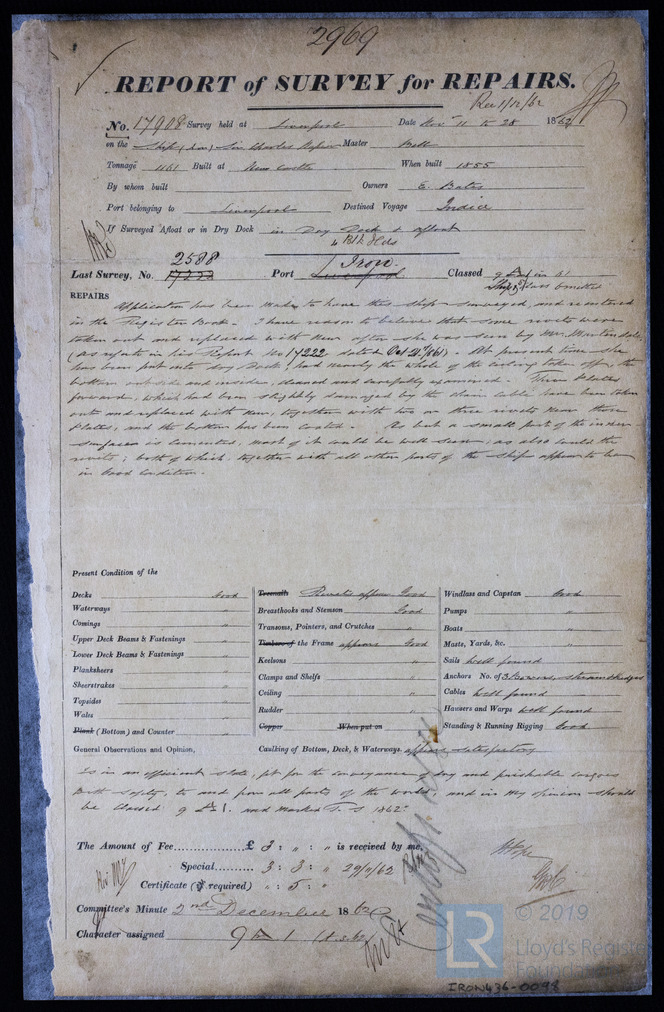 2969
REPORT of SURVEY for REPAIRS.
Rec 1/12/62
No. 17908 Survey held at Liverpool Date Nov 11 to 28 1862
on the Ship (Iron) Sir Charles Napier Master Bell
Tonnage 1161 Built at Newcastle When built 1855
By whom built Owners E. Bates
Port belonging to Liverpool Destined Voyage India
If Surveyed Afloat or in Dry Dock in Dry Dock & afloat
4 Blk Hds
2588 Iron.
Last Survey, No. 17222 Port Liverpool Classed 9 A 1 in 61
Ship's class omitted
REPAIRS
Application has been made to have this ship surveyed, and reentered
in the Register Book. I have reason to believe that some rivets were
taken out and replaced with new after she was seen by Mr. Martindale,
(as reported in his Report No 17222 dated Oct 21st/61). At present time she
has been put into dry Dock, had nearly the whole of the ceiling taken off, the
bottom outside and inside, cleaned and carefully examined. Three Plates
forward, which had been slightly damaged by the chain cable have been taken
out and replaced with new, together with two or three rivets near those
Plates, and the bottom has been coated. As but a small part of the inner
surfaces is cemented, most of it could be well seen, as also could the
rivets; both of which together with all other parts of the ship appear to be
in Good Condition.
Present Condition of the
Decks Good
Waterways "
Comings "
Upper Deck Beams & Fastenings "
Lower Deck Beams & Fastenings "
Planksheers "
Sheerstrakes "
Topsides "
Wales "
Plank (Bottom) and Counter "
Treenails Rivets appear Good
Breasthooks and Stemson Good
Transoms, Pointers, and Crutches "
Timbers of the Frame appears Good
Keelsons "
Clamps and Shelfs "
Ceiling "
Rudder "
Copper When put on
Windlass and Capstan Good
Pumps "
Boats "
Masts, Yards, &c. "
Sails Well found
Anchors No. of 3 Bowers, stream & kedges
Cables Well found
Hausers and Warps Well found
Standing & Running Rigging Good
General Observations and Opinion, Caulking of Bottom, Deck, & Waterways. appears satisfactory
Is in an efficient state, fit for the conveyance of dry and perishable cargoes
with safety, to and from all parts of the world, and in my opinion should
be Classed 9 A 1. and marked T. S 1862
The Amount of Fee £ 3 : " : " is received by me,
Special 3 : 3 : " 29/11/62
Certificate (if required) " : 5 : "
Committee's Minute 2nd December 1862
Character assigned 9 A 1
LR
© 2019
Lloyd's Register
Foundation
IRON436-0098